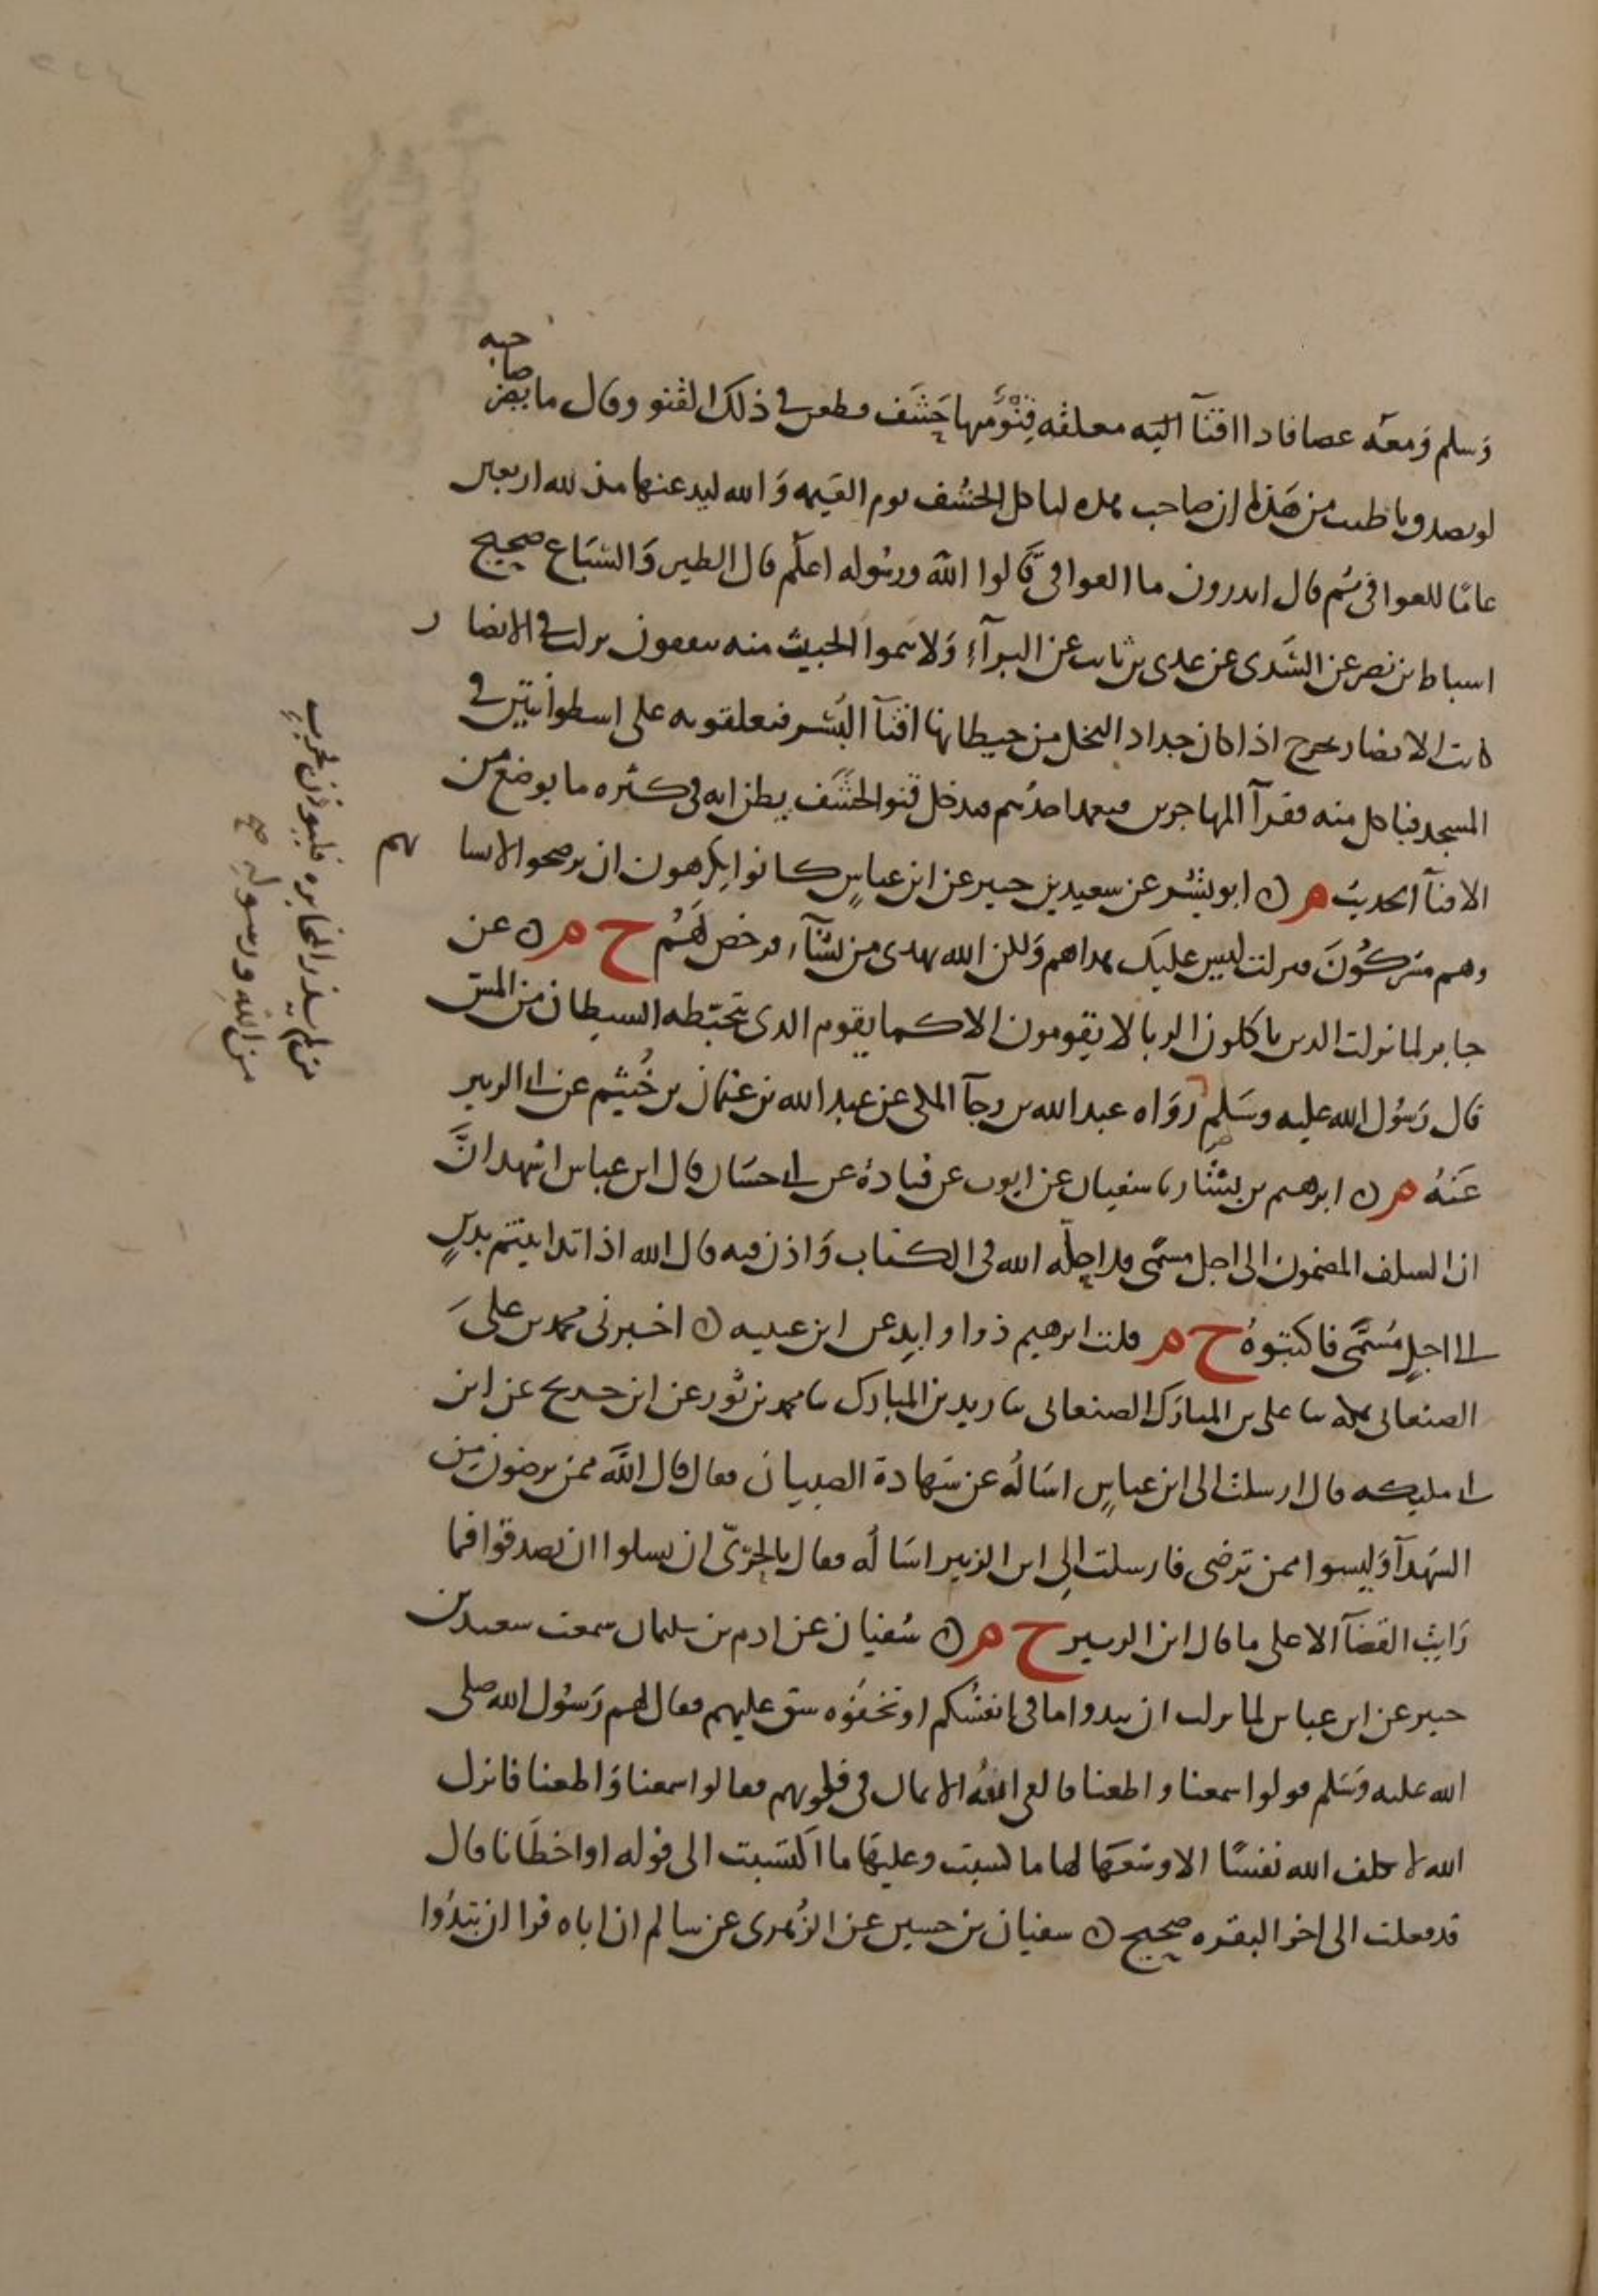 وسلم ومعه عصا فاذا اقنآ اليه معلقه قنو منها حشف فطعن في ذلك القنو وقال ما يضر صاحبه
لو تصدق باطيب من هذه ان صاحب هذه لياكل الحشف يوم القيمه والله ليدعنها مذلله اربعين
عاما للعوافي ثم قال اتدرون ما العوافي قالوا الله ورسوله اعلم قال الطير والسباع صحيح
اسباط بن نصر عن السدي عن عدي بن ثابت عن البرآء ولا تيمموا الخبيث منه تنفقون نزلت في الانصار
كانت الانصار تخرج اذا كان جداد النخل من حيطانها اقنآ البسر فيعلقونه على اسطوانتين في
المسجد فياكل منه فقرآ المهاجرين فيعمد احدهم فيدخل قنو الحشف يظن انه في كثره ما يوضع من
الاقنآ الحديث م ن ابو بشر عن سعيد بن جبير عن ابن عباس كانوا يكرهون ان يرضخوا لانسابهم
وهم مشركون فنزلت ليس عليك هداهم ولكن الله يهدي من يشآء فرخص لهم خ م ن عن
جابر لما نزلت الذين ياكلون الربا لا يقومون الا كما يقوم الذي يتخبطه الشيطان من المس
قال رسول الله عليه وسلم رواه عبد الله بن رجآ المكي عن عبد الله بن عثمان بن خثيم عن ابي الزبير
عنه م ن ابرهيم بن بشار نا سفيان عن ايوب عن قتادة عن ابي حسان قال ابن عباس اشهد ان
ان السلف المضمون الى اجل مسمى قد احله الله في الكتاب واذن فيه قال الله اذا تداينتم بدين
الى اجل مسمى فاكتبوه خ م قلت ابرهيم ذو اوابد عن ابن عيينه ن اخبرني محمد بن علي
الصنعاني بمكه نا علي بن المبارك الصنعاني نا زيد بن المبارك نا محمد بن ثور عن ابن جريج عن ابن
ابي مليكه قال ارسلت الى ابن عباس اساله عن شهادة الصبيان فقال قال الله ممن ترضون من
الشهدآ وليسوا ممن نرضى فارسلت الى ابن الزبير اساله فقال بالحري ان يسلوا ان يصدقوا فما
رايت القضآ الا على ما قال ابن الزبير خ م ن سفيان عن ادم بن سليمان سمعت سعيد بن
جبير عن ابن عباس لما نزلت ان تبدوا ما في انفسكم او تخفوه شق عليهم فقال لهم رسول الله صلى
الله عليه وسلم قولوا سمعنا واطعنا فالقى الله الايمان في قلوبهم فقالوا سمعنا واطعنا فانزل
الله لا يكلف الله نفسا الا وسعها لها ما كسبت وعليها ما اكتسبت الى قوله او اخطانا قال
قد فعلت الى اخر البقره صحيح ن سفيان بن حسين عن الزهري عن سالم ان اباه قرا ان تبدوا
من لم يذر المخابره فليوذن بحرب
من الله ورسوله صح